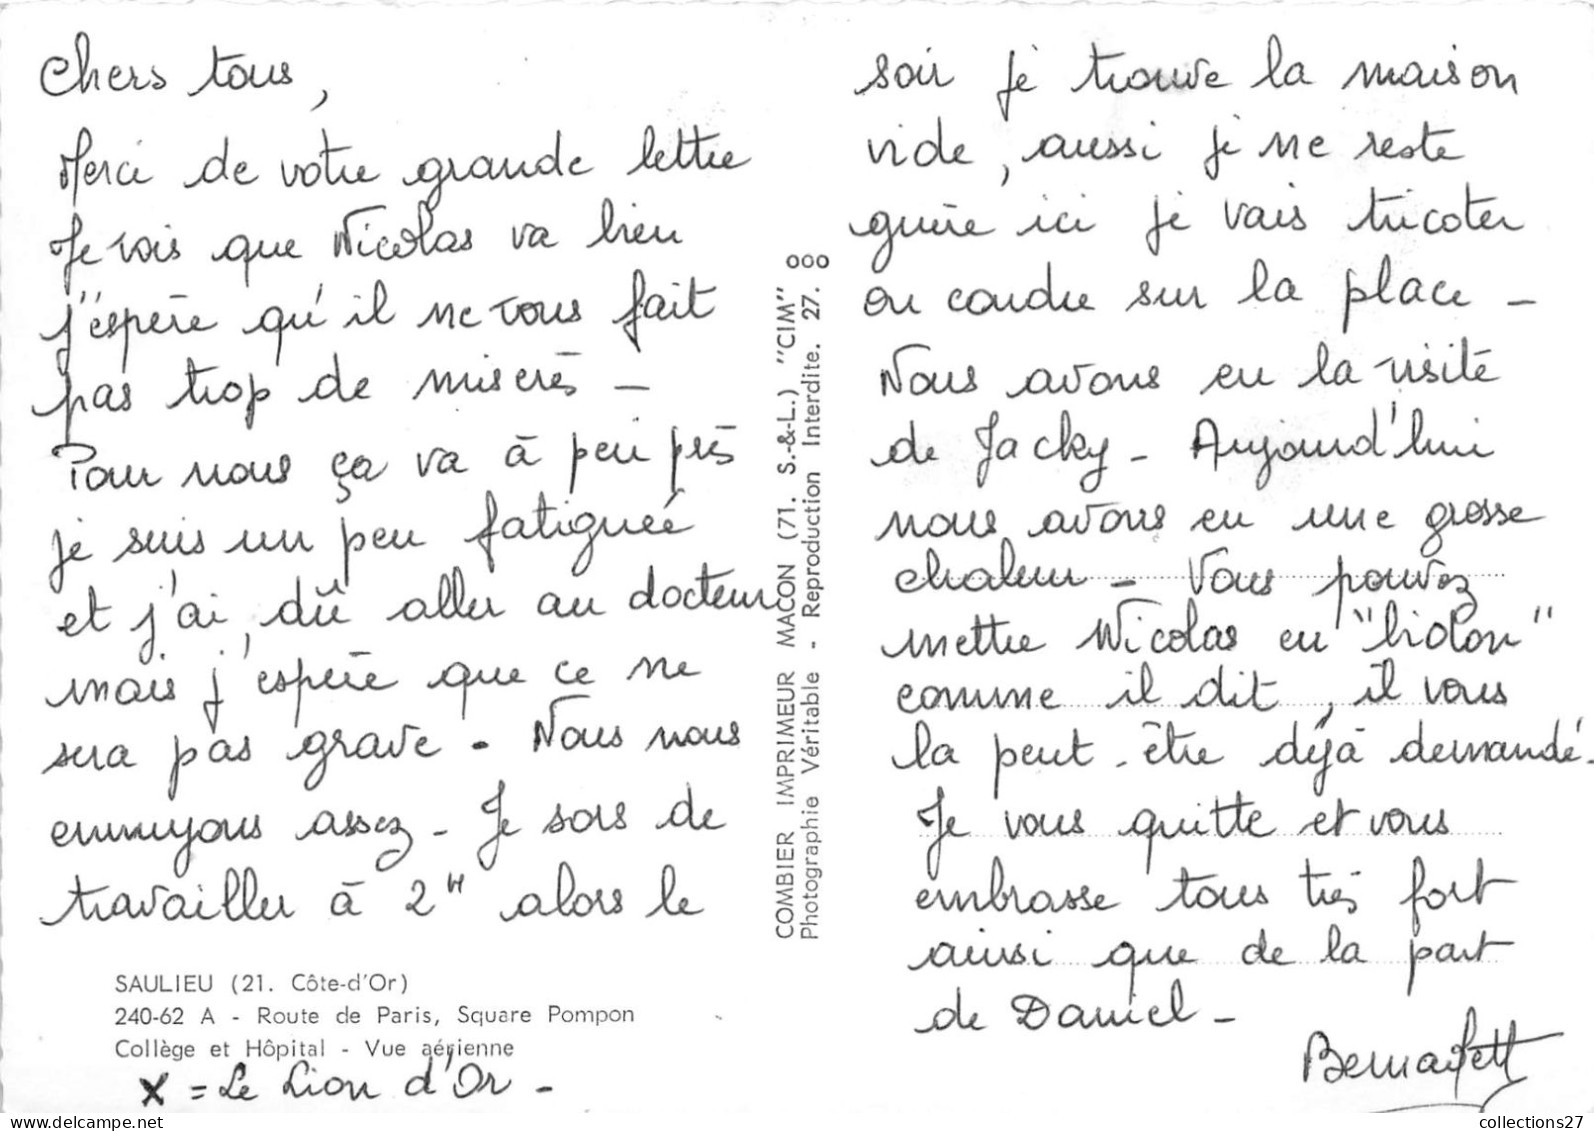 Chers tous,
Merci de votre grande lettre
Je vois que Nicolas va bien
j'espère qu'il ne vous fait
pas trop de misères -
Pour nous ça va à peu près
je suis un peu fatiguée
et j'ai dû aller au docteur
mais j'espère que ce ne
sera pas grave - Nous nous
ennuyons assez - Je sors de
travailler à 2H alors le
SAULIEU (21. Côte-d'Or)
240-62 A - Route de Paris, Square Pompon
Collège et Hôpital - Vue aérienne
X = Le Lion d'Or -
COMBIER IMPRIMEUR MACON (71. S.-&-L.) "CIM"
Photographie Véritable - Reproduction Interdite. 27. ooo
soir je trouve la maison
vide, aussi je ne reste
guère ici je vais tricoter
ou coudre sur la place -
Nous avons eu la visite
de Jacky - Aujourd'hui
nous avons eu une grosse
chaleur - Vous pouvez
mettre Nicolas en "biolon"
comme il dit, il vous
la peut-être déjà demandé.
Je vous quitte et vous
embrasse tous très fort
ainsi que de la part
de Daniel -
Bernadett
collections27